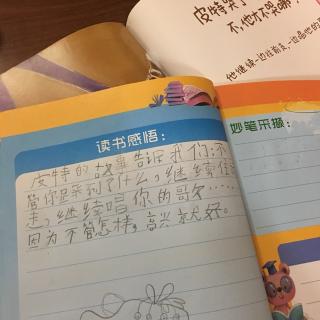 皮特哭了
不,他才不哭嘞
他继续一边往前走,一边唱他的
读书感悟:
皮特的故事告诉我们:不
管你踩到了什么。继续往
走,继续唱你的哥……
因为不管怎样,高兴就好。
妙笔采撷: